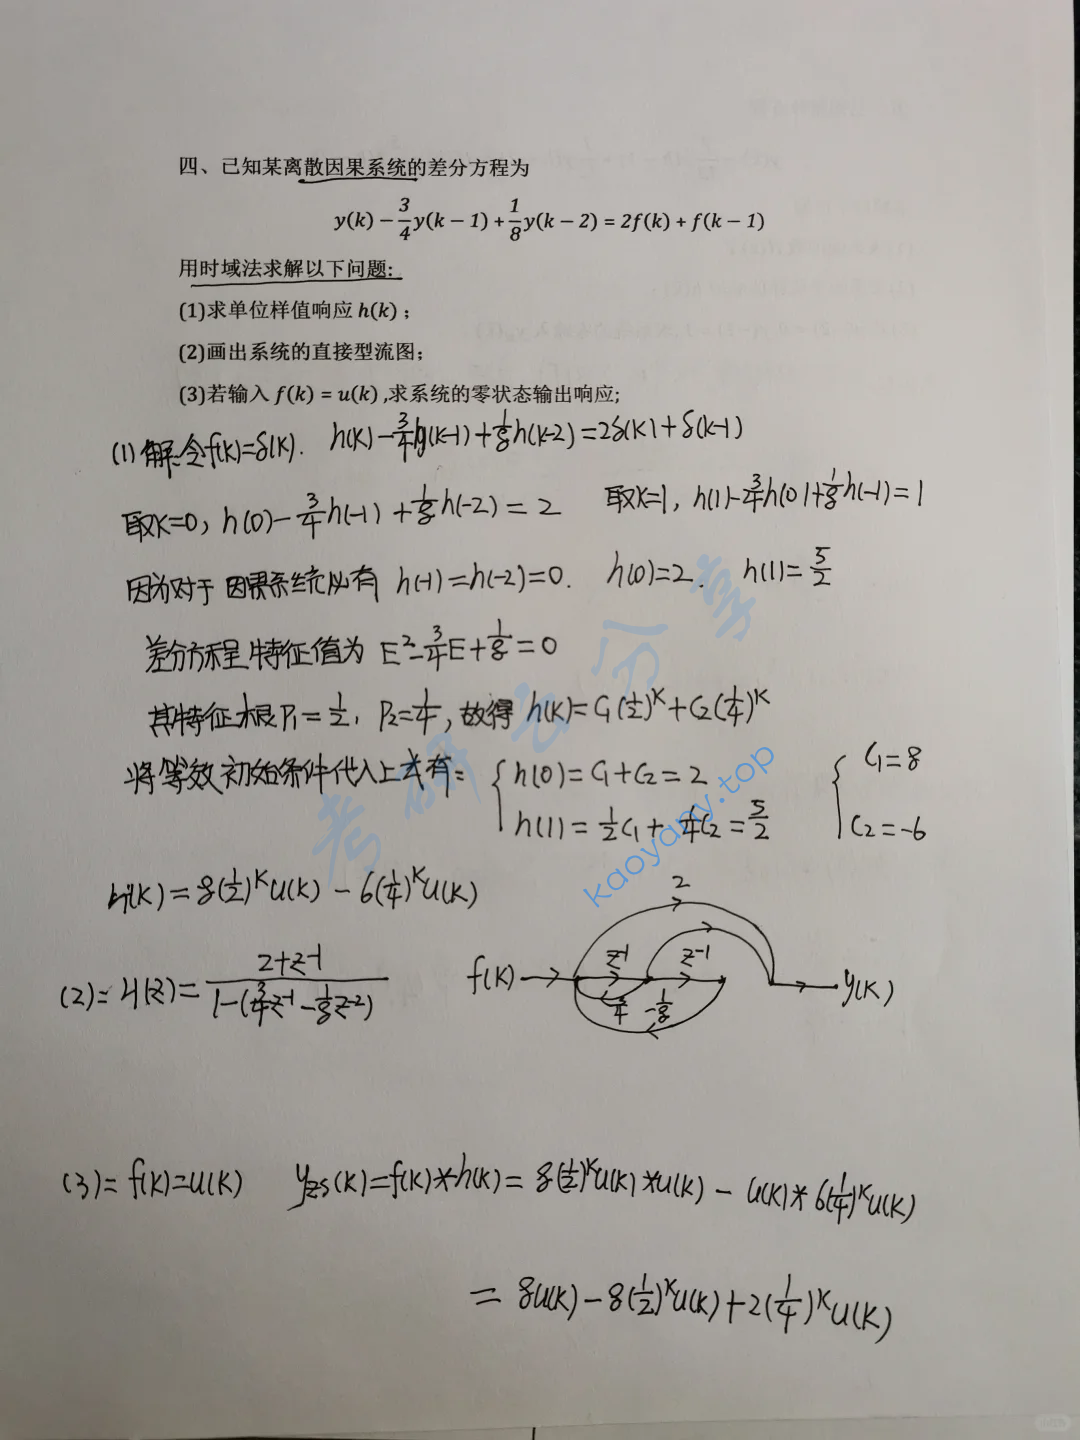 四、已知某离散因果系统的差分方程为
y(k) − 3/4 y(k − 1) + 1/8 y(k − 2) = 2f(k) + f(k − 1)
用时域法求解以下问题:
(1)求单位样值响应 h(k) ;
(2)画出系统的直接型流图;
(3)若输入 f(k) = u(k) ,求系统的零状态输出响应;
(1) 解:令f(k)=δ(k). h(k)-3/4h(k-1)+1/8h(k-2)=2δ(k)+δ(k-1)
取k=0, h(0)-3/4h(-1)+1/8h(-2)=2 取k=1, h(1)-3/4h(0)+1/8h(-1)=1
因为对于因果系统必有 h(-1)=h(-2)=0. h(0)=2. h(1)=5/2
差分方程特征值为 E²-3/4E+1/8=0
其特征根P₁=1/2, P₂=1/4, 故得 h(k)=C₁(1/2)^k+C₂(1/4)^k
将等效初始条件代入上式有: { h(0)=C₁+C₂=2 { C₁=8
h(1)=1/2C₁+1/4C₂=5/2 C₂=-6
h(k)=8(1/2)^k u(k)-6(1/4)^k u(k)
(2)= H(z)= (2+z^-1)/(1-(3/4z^-1-1/8z^-2))
f(k) 2 z^-1 z^-1 3/4 -1/8 y(k)
(3)= f(k)=u(k) yzs(k)=f(k)*h(k)=8(1/2)^k u(k)*u(k)-u(k)*6(1/4)^k u(k)
=8u(k)-8(1/2)^k u(k)+2(1/4)^k u(k)
考研云分享
kaoyany.top